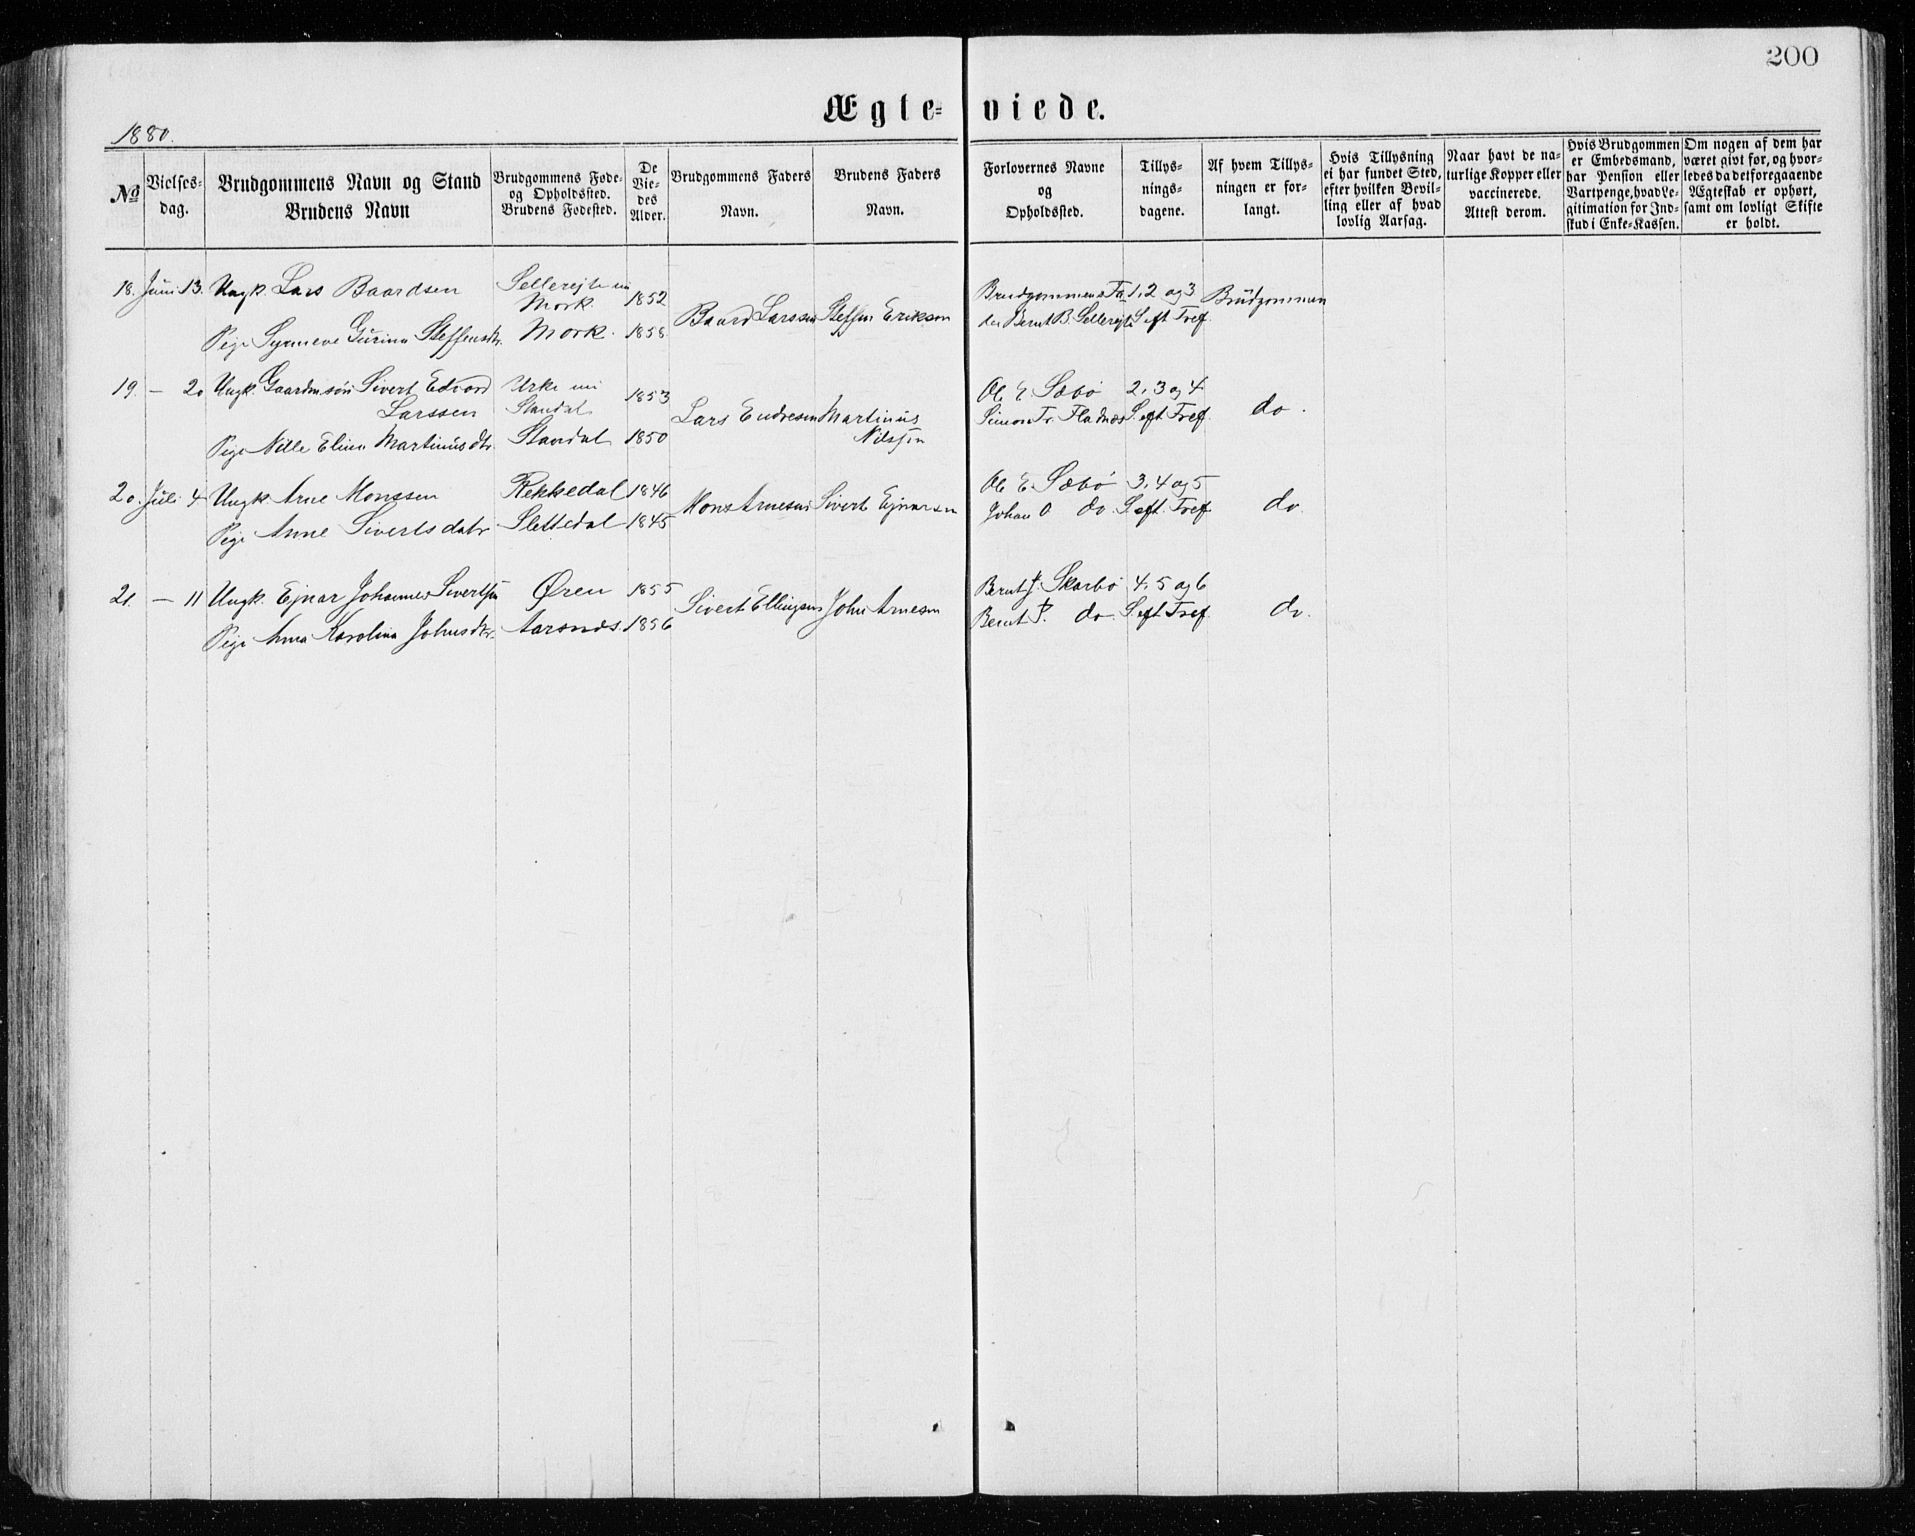 200
Ægte- viede.
1880.
No
Vielses-
dag.
Brudgommens Navn og Stand
Brudens Navn
Brudgommens Føde-
og Opholdssted.
Brudens Fødested.
De
Vie-
des
Alder.
Brudgommens Faders
Navn.
Brudens Faders
Navn.
Forlovernes Navne
og
Opholdssted.
Tillys-
nings-
dagene.
Af hvem Tillys-
ningen er for-
langt.
Hvis Tillysning
ei har fundet Sted,
efter hvilken Bevil-
ling eller af hvad
lovlig Aarsag.
Naar havt de na-
turlige Kopper eller
vaccinerede.
Attest derom.
Hvis Brudgommen
er Embedsmand,
har Pension eller
Vartpenge, hvad Le-
gitimation for Ind-
skud i Enke-Kassen.
Om nogen af dem har
været givt før, og hvor-
ledes da det foregaaende
Ægteskab er ophørt,
samt om lovligt Skifte
er holdt.
18. Juni 13. Ungk. Lars Baardsen
Pige Synneve Gurina Steffensdtr.
Sellerejte nu
Mork. 1852
Mork. 1858
Baard Larssen Steffen Erikson
Brudgommens Fa
der Bernt B. Sellerejte
1, 2 og 3
S. eft Tref.
Brudgommen
19. — 20 Ungk. Gaardmsøn Sivert Edvard
Larssen
Pige Nille Elina Martinusdtr.
Urke nu
Standal 1853
Standal 1850
Lars Endresen Martinus
Nilssen
Ole E. Sæbø
Simon Fr. Fladnæs
2, 3 og 4
S. eft. Tref.
do.
20. Juli 4 Ungk. Arne Monssen
Pige Anne Sivertsdatr
Rekkedal 1846
Slettedal 1845
Mons Arnesen Sivert Ejnarsen
Ole E. Sæbø
Johan O. do.
3, 4 og 5
S. eft. Tref.
do.
21. — 11 Ungk. Ejnar Johannes Sivertsen
Pige Anna Karolina Johnsdtr.
Øren 1855
Aarsnes. 1856
Sivert Ellingsen John Arnesen
Bernt J. Skarbø
Bernt P. do.
4, 5 og 6
S. eft Tref.
do.